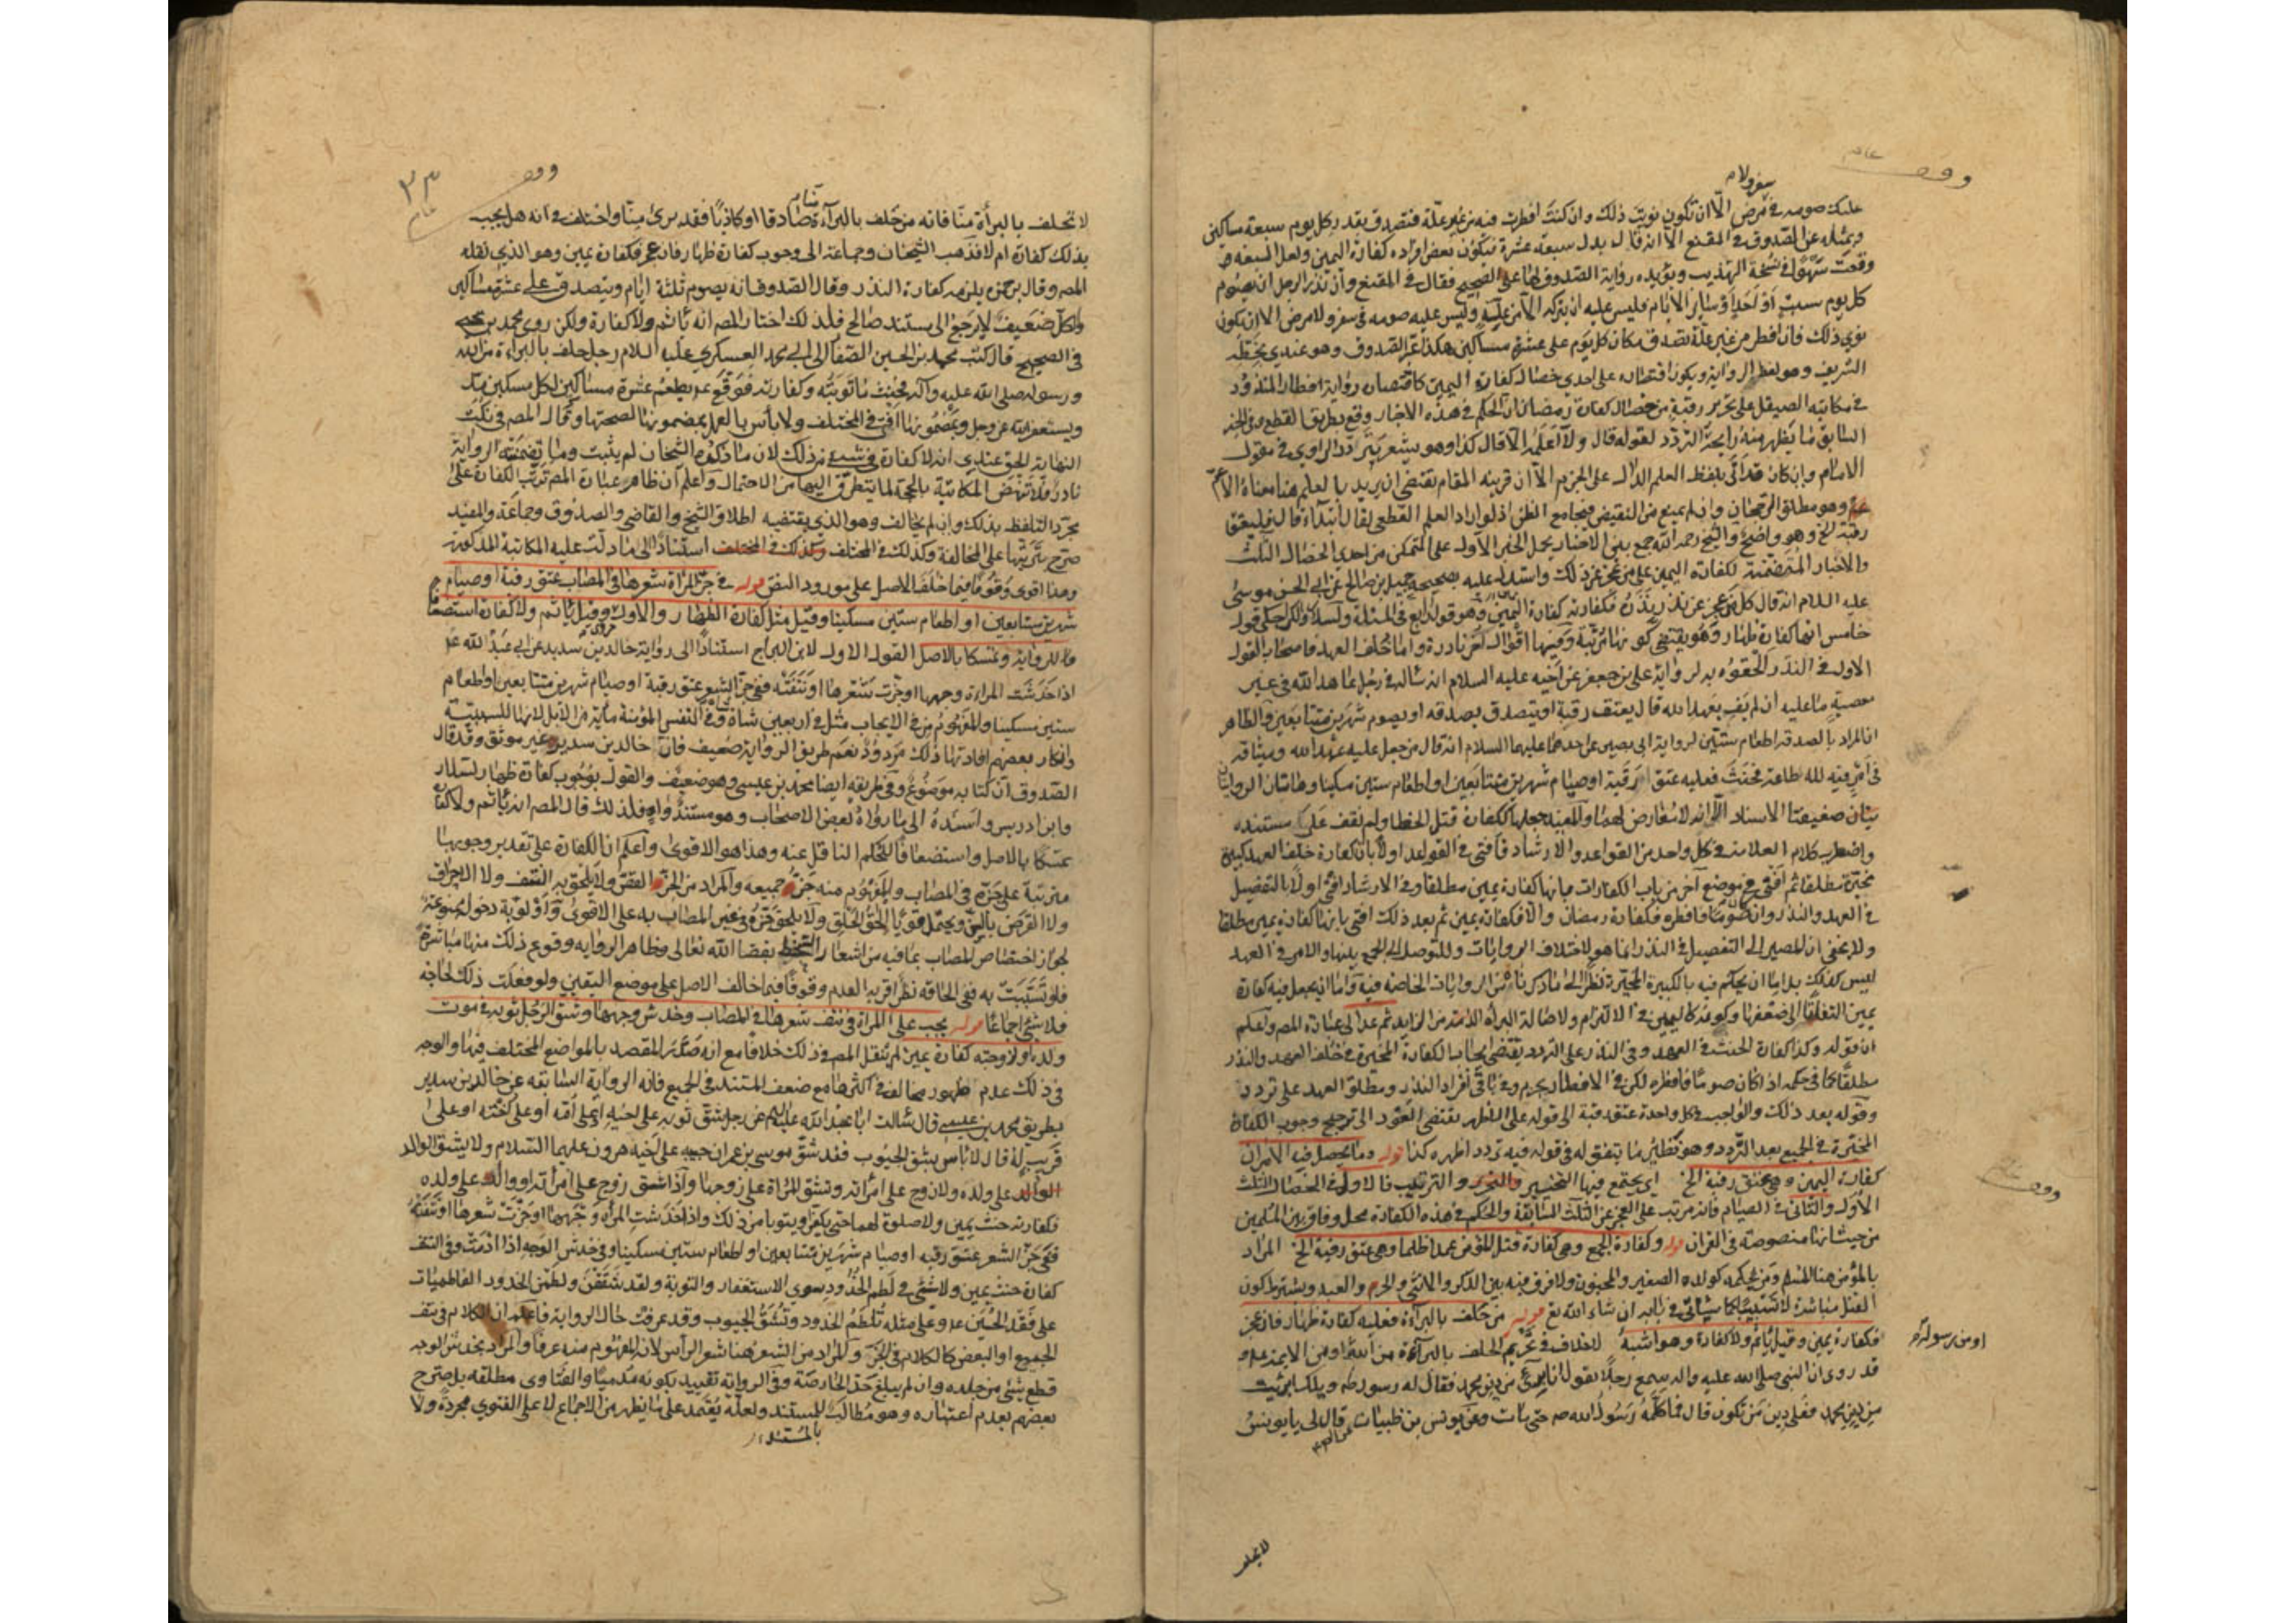 وقف
سفر ولا م
عليك صومه في مرض الا ان تكون نويت ذلك وان كنت افطرت فيه من غير علة فتصدق بقدر كل يوم سبعة مساكين
وبمثله عن الصدوق في المقنع الا انه قال بدل سبعة عشرة فيكون بعض افراده كفارة اليمين ولعل السبعة
وقعت سهوا في نسخة التهذيب ويؤيده رواية الصدوق لها على الصحيح فقال في المقنع وان نذر الرجل ان يصوم
كل يوم سبت او احد او سائر الايام فليس عليه ان يتركه الا من علة وليس عليه صومه في سفر ولا مرض الا ان يكون
نوى ذلك فان افطر من غير علة تصدق مكان كل يوم على عشرة مساكين هكذا عبر الصدوق وهو عندي بخطه
الشريف وهو لفظ الرواية ويكون اقتصاره على احدي خصال كفارة اليمين كاقتصاره رواية افطار المنذور
في مكاتبة الصيقل على تحرير رقبة من خصال كفارة رمضان لان الحكم في هذه الاخبار وقع بطريق القطع وفي الخبر
السابق ما يظهر منه رايحة التردد لقوله قال ولا اعلمه الا قال كذا وهو يشعر بتردد الراوي في مقول
الامام وان كان قد اتى بلفظ العلم الدال على الجزم الا ان قرينة المقام تقتضي ان يريد بالعلم هنا معناه الاعم
وهو مطلق الرجحان وان لم يمنع من النقيض فيجامع الظن اذ لو اراد العلم القطعي لقال ابتداء قال فليعتق
رقبة الخ وهو واضح والشيخ رحمه الله جمع بين الاخبار بحمل الخبر الاول على التمكن من احدي الخصال الثلث
والاخبار المتضمنة لكفارة اليمين على من عجز عن ذلك واستدل عليه بصحيحة جميل بن صالح عن ابي الحسن موسى
عليه السلام انه قال كل من عجز عن نذر نذره فكفارته كفارة اليمين وهو قول رابع في المسئلة
خامس انها كفارة ظهار وهو يقتضي كونها مرتبة وفيها اقوال اخر نادرة واما خلف العهد فاصحاب القول
الاول في النذر الحقوه به لرواية علي بن جعفر عن اخيه عليه السلام انه ساله في رجل عاهد الله في غير
معصية ما عليه ان لم يف بعهد الله قال يعتق رقبة او يتصدق بصدقة او يصوم شهرين متتابعين والظاهر
ان المراد بالصدقة اطعام ستين لرواية ابي بصير عن احدهما عليهما السلام انه قال من جعل عليه عهد الله وميثاقه
في امر فيه لله طاعة فحنث فعليه عتق رقبة او صيام شهرين متتابعين او اطعام ستين مسكينا وهاتان الروايتان
ضعيفتا الاسناد الا انه لا معارض لهما والمفيد جعلها ككفارة قتل الخطا ولم نقف على مستنده
واضطرب كلام العلامة في كل واحد من القواعد والارشاد فافتى في القواعد اولا بان كفارة خلف العهد كبيرة
مخيرة مطلقا ثم افتى في موضع آخر من باب الكفارات بانها كفارة يمين مطلقا وفي الارشاد افتى اولا بالتفصيل
في العهد والنذر وانه ان كان صوما فافطره فكفارة رمضان والا فكفارة يمين ثم بعد ذلك افتى بانها كفارة يمين مطلقا
ولا يخفى ان المصير الى التفصيل في النذر انما هو لاختلاف الروايات وللتوصل الى الجمع بينها والامر في العهد
ليس كذلك بل اما ان يحكم فيه بالكبيرة المخيرة نظرا الى ما ذكرنا من الروايات الخاصة فيه واما ان يجعل فيه كفارة
يمين التفاتا الى ضعفها وكونه كاليمين في الالتزام ولاصالة البراءة من الزايد ثم عد الى عبارة المص واعلم
ان قوله وكذا كفارة الحنث في العهد وفي النذر على التردد يقتضي ايجاب الكفارة المخيرة في خلف العهد والنذر
مطلقا في حكمه اذا كان صوما فافطره لكن في الافطار يجزم وفي باقي افراد النذر ومطلق العهد على تردد
وقوله بعد ذلك والواجب في كل واحدة عتق رقبة الى قوله على الاظهر يقتضي العود الى ترجيح وجوب الكفارة
المخيرة في الجميع بعد التردد وهو نظائر ما يتفق له في قوله فيه تردد اظهره كذا قوله وما يحصل فيه الامران
كفارة اليمين وهي عتق رقبة الخ اي يجتمع فيها التخيير والترتيب فالاول في الخصال الثلث
الاول والثاني في الصيام فانه مرتب على العجز عن الثلث السابقة والحكم في هذه الكفارة محل وفاق بين المسلمين
من حيث انها منصوصة في القران قوله وكفارة الجمع وهي كفارة قتل المؤمن عمدا ظلما وهي عتق رقبة الخ المراد
بالمؤمن هنا المسلم ومن بحكمه كولده الصغير والمجنون ولا فرق فيه بين الذكر والانثى والحر والعبد ويشترط كون
القتل مباشرة لا تسبيبا كما سياتي في بابه ان شاء الله تع قوله من حلف بالبراءة فعليه كفارة ظهار فان عجز
فكفارة يمين وقيل ياثم ولا كفارة وهو اشبه لا خلاف في تحريم الحلف بالبراءة من الله او من الايمة
او من رسوله
قد روي ان النبي صلى الله عليه واله سمع رجلا يقول انا بريء من دين محمد فقال له رسول الله ويلك اذا برئت
من دين محمد فعلى دين من تكون قال فما كلمه رسول الله ص حتى مات وعن يونس بن ظبيان قال لي يا يونس
لا تحلف
وقف
٣٣
لا تحلف بالبراءة منا فانه من حلف بالبراءة منا صادقا او كاذبا فقد برئ منا واختلف في انه هل يجب
بذلك كفارة ام لا فذهب الشيخان وجماعة الى وجوب كفارة ظهار فان عجز فكفارة يمين وهو الذي نقله
المص وقال بن حمزة يلزمه كفارة النذر وقال الصدوق انه يصوم ثلثة ايام ويتصدق على عشرة مساكين
والكل ضعيف لا يرجع الى مستند صالح فلذلك اختار المص انه ياثم ولا كفارة ولكن روى محمد بن يحيى
في الصحيح قال كتب محمد بن الحسن الصفار الى ابي محمد العسكري عليه السلام رجل حلف بالبراءة من الله
ورسوله صلى الله عليه وآله فحنث ما توبته وكفارته فوقع ع يطعم عشرة مساكين لكل مسكين مد
ويستغفر الله عز وجل وبمضمونها افتى في المختلف ولا بأس بالعمل بمضمونها لصحتها وقال المص في نكت
النهاية الحق عندي انه لا كفارة في شيء من ذلك لان ما ذكره الشيخان لم يثبت وما تضمنته الرواية
نادر فلا تنهض المكاتبة بالحجة لما يتطرق اليها من الاحتمال واعلم ان ظاهر عبارة المص ترتب الكفارة على
مجرد التلفظ بذلك وان لم يخالف وهو الذي يقتضيه اطلاق الشيخ والقاضي والصدوق وجماعة والمفيد
صرح بترتبها على المخالفة وكذلك في المختلف استنادا الى ما دلت عليه المكاتبة المذكورة
وهذا اقوى وقوفا فيما خالف الاصل على مورد النص قوله في جز المراة شعرها في المصاب عتق رقبة او صيام
شهرين متتابعين او اطعام ستين مسكينا وقيل مثل كفارة الظهار والاول مروي وقيل ياثم ولا كفارة استضعافا
للرواية وتمسكا بالاصل القول الاول لابن البراج استنادا الى رواية خالد بن سدير عن ابي عبد الله ع
اذا خدشت المراءة وجهها او جزت شعرها او نتفته ففي جز الشعر عتق رقبة او صيام شهرين متتابعين او اطعام
ستين مسكينا والمفهوم من في الايجاب مثل في اربعين شاة شاة وفي النفس المؤمنة ماية من الابل لانها للسببية
وانكار بعضهم افادتها ذلك مردود نعم طريق الرواية ضعيف فان خالد بن سدير غير موثق وقد قال
الصدوق ان كتابه موضوع وفي طريقه ايضا محمد بن عيسى وهو ضعيف والقول بوجوب كفارة ظهار لسلار
وابن ادريس واسنده الى ما رواه بعض الاصحاب وهو مستند واه فلذلك قال المص انه ياثم ولا كفارة
تمسكا بالاصل واستضعافا للحكم الناقل عنه وهذا هو الاقوى واعلم ان الكفارة على تقدير وجوبها
مترتبة على جزه في المصاب والمفهوم منه جز جميعه والمراد من الجز القص ولا يلحق به النتف ولا الاحراق
ولا القرض بالسن ويحتمل قويا الحاق الحلق ولا يلحق جزه في غير المصاب به على الاقوى واولوية دخوله ممنوعة
لجواز اختصاص المصاب بما فيه من اشعار السخط بقضا الله تعالى وظاهر الرواية وقوع ذلك منها مباشرة
فلو تسببت به ففي الحاقه نظر اقربه العدم وقوفا فيما خالف الاصل على موضع اليقين ولو فعلت ذلك لحاجة
فلا شئ اجماعا قوله يجب على المراة في نتف شعرها في المصاب وخدش وجهها وشق الرجل ثوبه في موت
ولده او زوجته كفارة يمين لم ينقل المص في ذلك خلافا مع انه صدر المقصد بالمواضع المختلف فيها والوجه
في ذلك عدم ظهور مخالف في اكثرها مع ضعف المستند في الجميع فانه الرواية السابقة عن خالد بن سدير
بطريق محمد بن عيسى قال سالت ابا عبد الله عليه السلم عن رجل شق ثوبه على ابيه او على امه او على اخته او على
قريب له قال لا باس بشق الجيوب فقد شق موسى بن عمران جيبه على اخيه هرون عليهما السلام ولا يشق الوالد
على ولده ولا زوج على امراته وتشق المراة على زوجها واذا شق زوج على امراته او والد على ولده
فكفارته حنث يمين ولا صلوة لهما حتى يكفرا ويتوبا من ذلك واذا خدشت المراة وجهها او جزت شعرها او نتفته
ففي جز الشعر عتق رقبة او صيام شهرين متتابعين او اطعام ستين مسكينا وفي خدش الوجه اذا ادمت وفي النتف
كفارة حنث يمين ولا شئ في لطم الخدود سوى الاستغفار والتوبة ولقد شققن ولطمن الخدود الفاطميات
على فقد الحسين ع وعلى مثله تلطم الخدود وتشق الجيوب وقد عرفت حال الرواية فاعلم ان الكلام في نتف
الجميع او البعض كالكلام في الجز والمراد من الشعر هنا شعر الراس لانه المفهوم منه عرفا والمراد بخدش الوجه
قطع شئ من جلده وان لم يبلغ حد الخارصة وفي الرواية تقييد بكونه مدميا والفتاوى مطلقة بل صرح
بعضهم بعدم اعتباره وهو مطالب بالمستند ولعله يعتمد على ما يظهر من الاجماع لا على الفتوى مجردة ولا